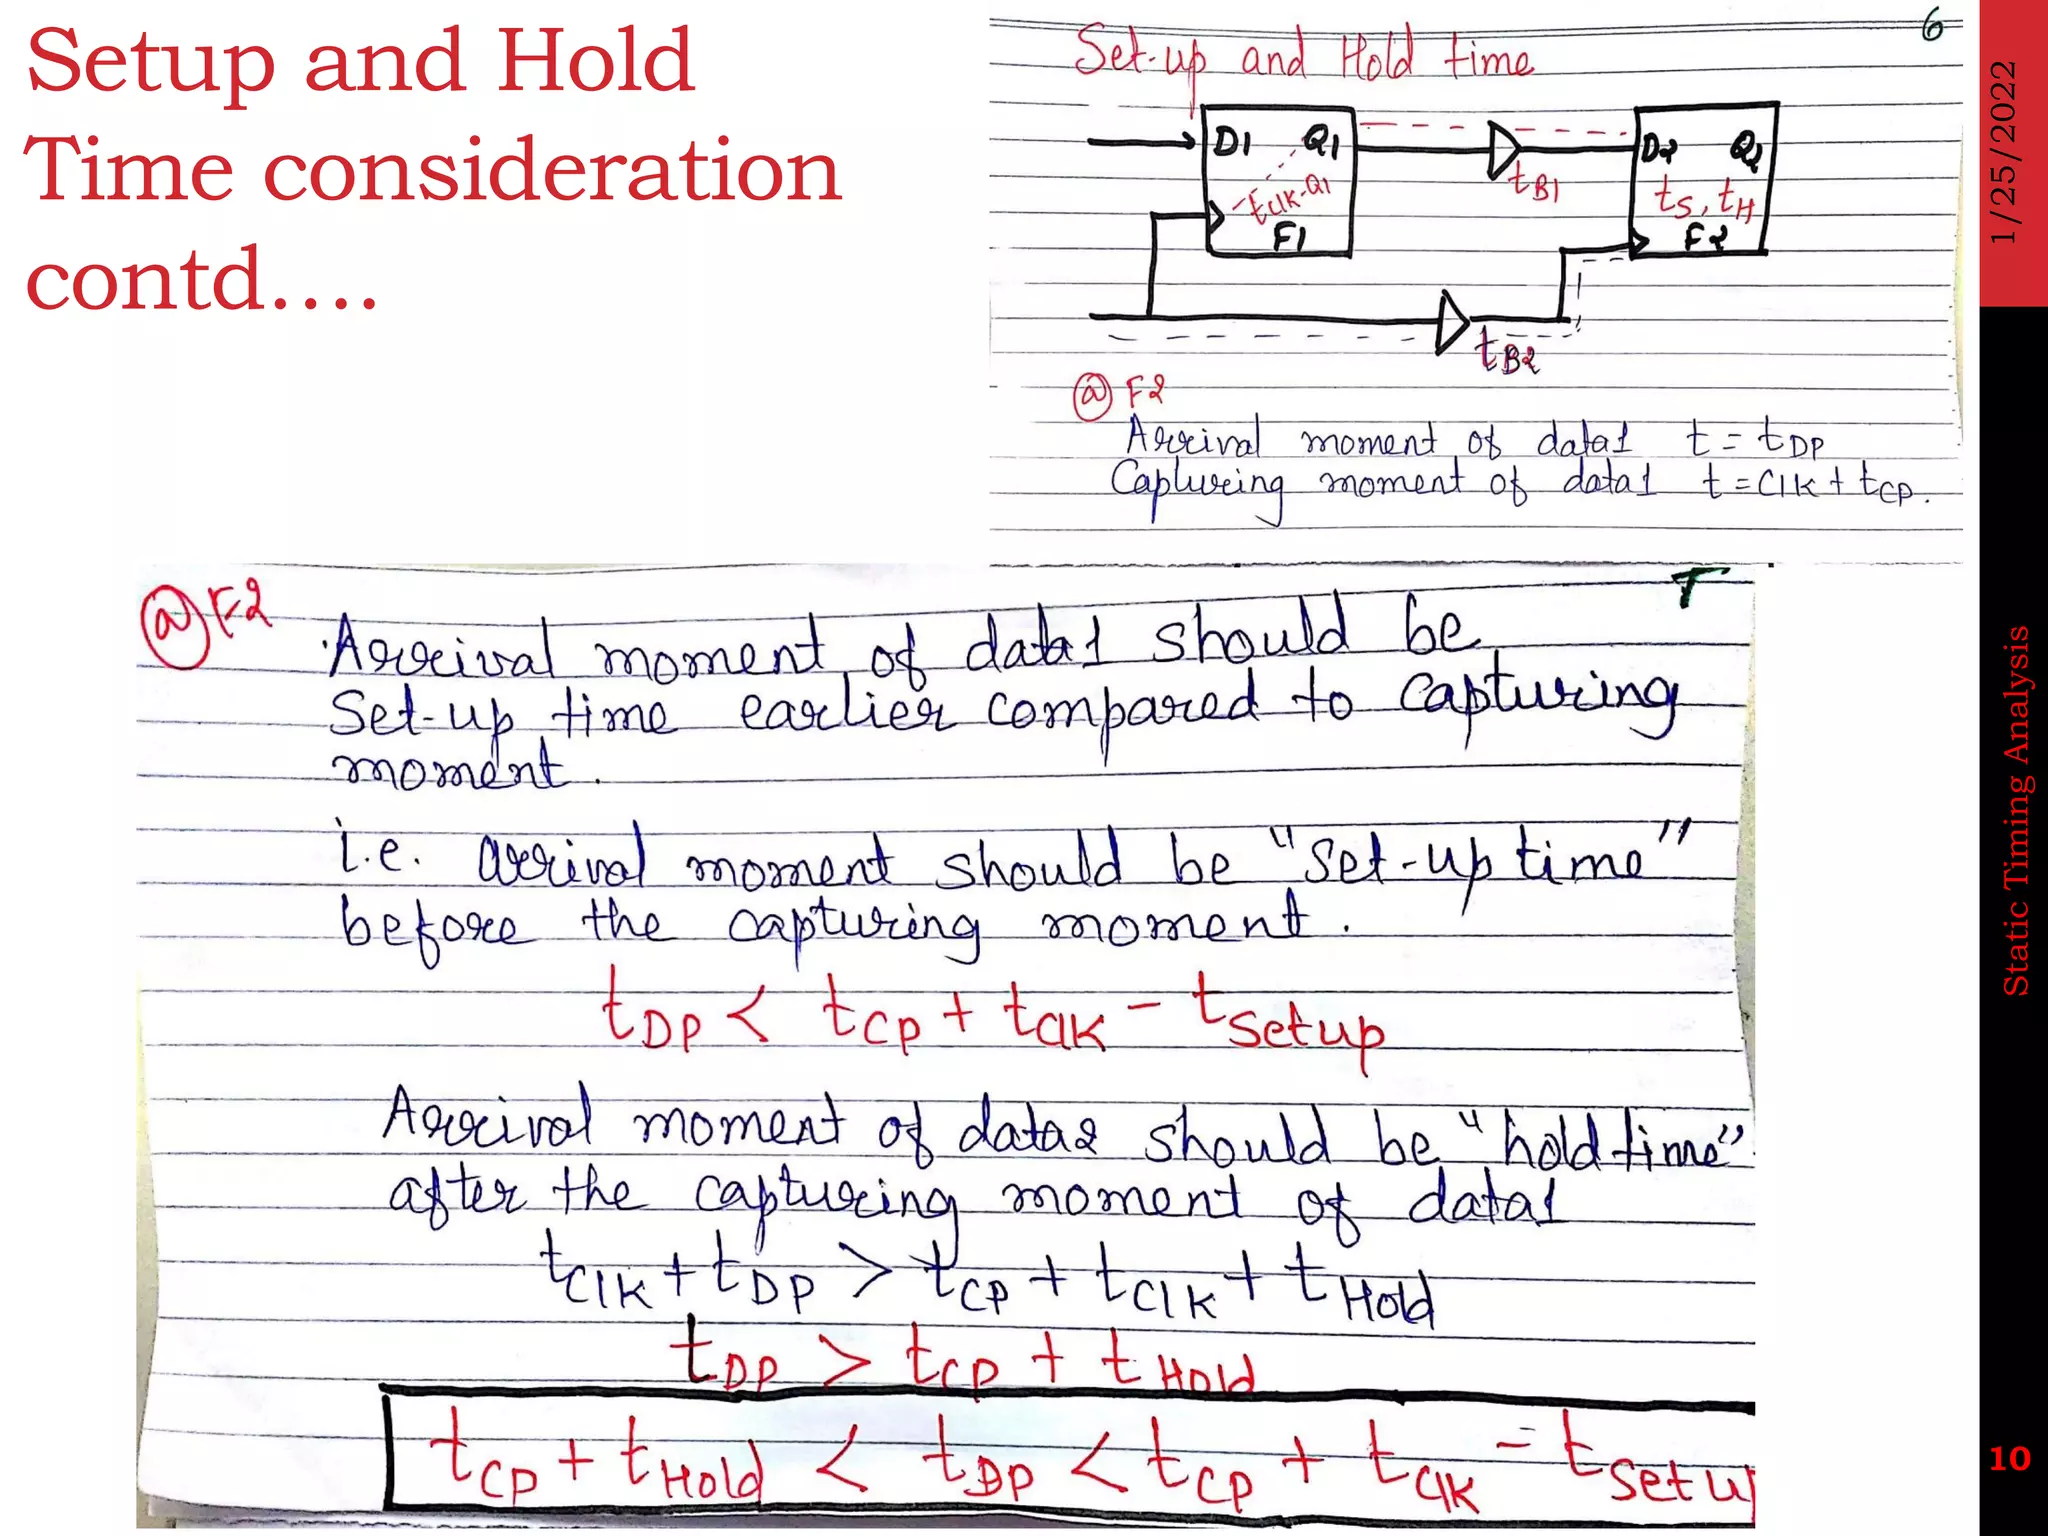 Setup and Hold
Time consideration
contd....
6
Set-up and Hold time
D1 Q1
tClk-Q1
F1
tB1
D2 Q2
tS, tH
F2
tB2
@ F2
Arrival moment of data1 t = tDP
Capturing moment of data1 t = Clk + tCP.
@ F2
Arrival moment of data1 should be
Set-up time earlier compared to capturing
moment.
i.e. arrival moment should be "Set-up time"
before the capturing moment.
tDP < tCP + tClK - tSetup
Arrival moment of data2 should be "hold time"
after the capturing moment of data1
tClK + tDP > tCP + tClK + tHold
tDP > tCP + tHold
tCP + tHold < tDP < tCP + tClK - tSetu
1/25/2022
Static Timing Analysis
10